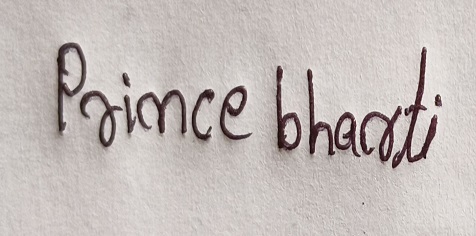 Prince bharti